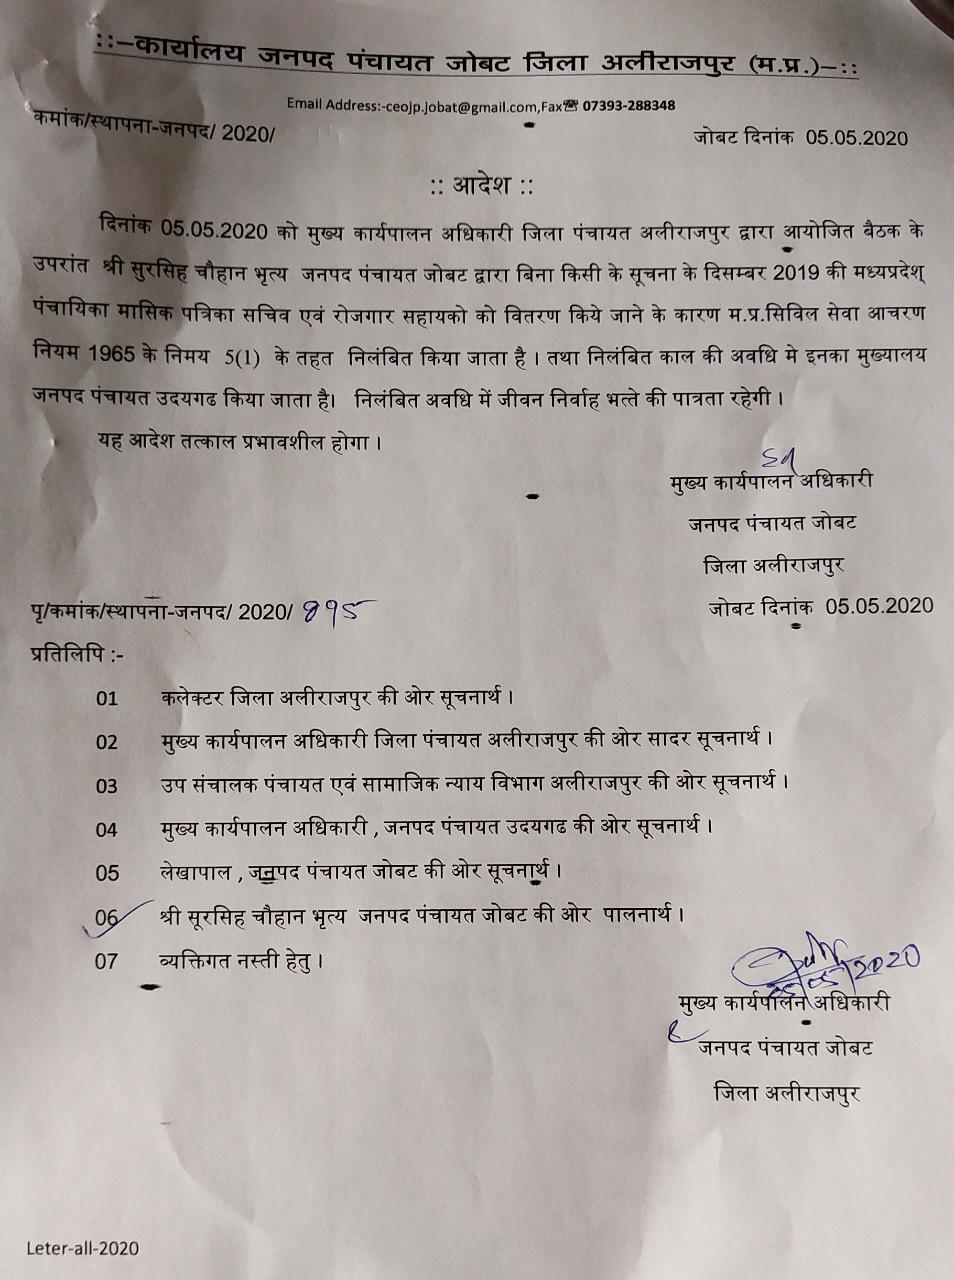 ::–कार्यालय जनपद पंचायत जोबट जिला अलीराजपुर (म.प्र.)–::
Email Address:-ceojp.jobat@gmail.com,Fax☏ 07393-288348
कमांक/स्थापना-जनपद/ 2020/ जोबट दिनांक 05.05.2020
:: आदेश ::
दिनांक 05.05.2020 को मुख्य कार्यपालन अधिकारी जिला पंचायत अलीराजपुर द्वारा आयोजित बैठक के
उपरांत श्री सुरसिह चौहान भृत्य जनपद पंचायत जोबट द्वारा बिना किसी के सूचना के दिसम्बर 2019 की मध्यप्रदेश्
पंचायिका मासिक पत्रिका सचिव एवं रोजगार सहायको को वितरण किये जाने के कारण म.प्र.सिविल सेवा आचरण
नियम 1965 के निमय 5(1) के तहत निलंबित किया जाता है । तथा निलंबित काल की अवधि मे इनका मुख्यालय
जनपद पंचायत उदयगढ किया जाता है। निलंबित अवधि में जीवन निर्वाह भत्ते की पात्रता रहेगी ।
यह आदेश तत्काल प्रभावशील होगा ।
Sd
मुख्य कार्यपालन अधिकारी
जनपद पंचायत जोबट
जिला अलीराजपुर
पृ/कमांक/स्थापना-जनपद/ 2020/ 895 जोबट दिनांक 05.05.2020
प्रतिलिपि :-
01 कलेक्टर जिला अलीराजपुर की ओर सूचनार्थ ।
02 मुख्य कार्यपालन अधिकारी जिला पंचायत अलीराजपुर की ओर सादर सूचनार्थ ।
03 उप संचालक पंचायत एवं सामाजिक न्याय विभाग अलीराजपुर की ओर सूचनार्थ ।
04 मुख्य कार्यपालन अधिकारी , जनपद पंचायत उदयगढ की ओर सूचनार्थ ।
05 लेखापाल , जनपद पंचायत जोबट की ओर सूचनार्थ ।
06 श्री सूरसिह चौहान भृत्य जनपद पंचायत जोबट की ओर पालनार्थ ।
07 व्यक्तिगत नस्ती हेतु ।
05/05/2020
मुख्य कार्यपालन अधिकारी
जनपद पंचायत जोबट
जिला अलीराजपुर
Leter-all-2020